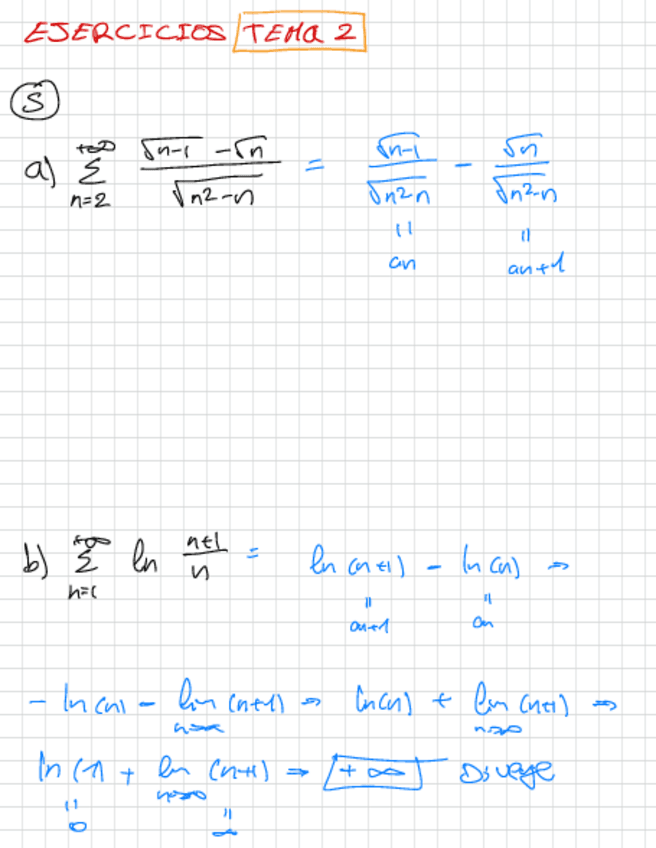 EJERCICIOS TEMA 2
5
a) +∞ Σ n=2 (√n-1 - √n) / √n²-n = √n-1 / √n²-n - √n / √n²-n
= =
an an+1
b) +∞ Σ n=1 ln n+1/n = ln (n+1) - ln (n) ⇒
= =
an+1 an
- ln(n) - lim n→∞ (n+1) ⇒ ln(n) + lim n→∞ (n+1) ⇒
ln (1) + lim n→∞ (n+1) ⇒ +∞ Diverge
= =
0 ∞